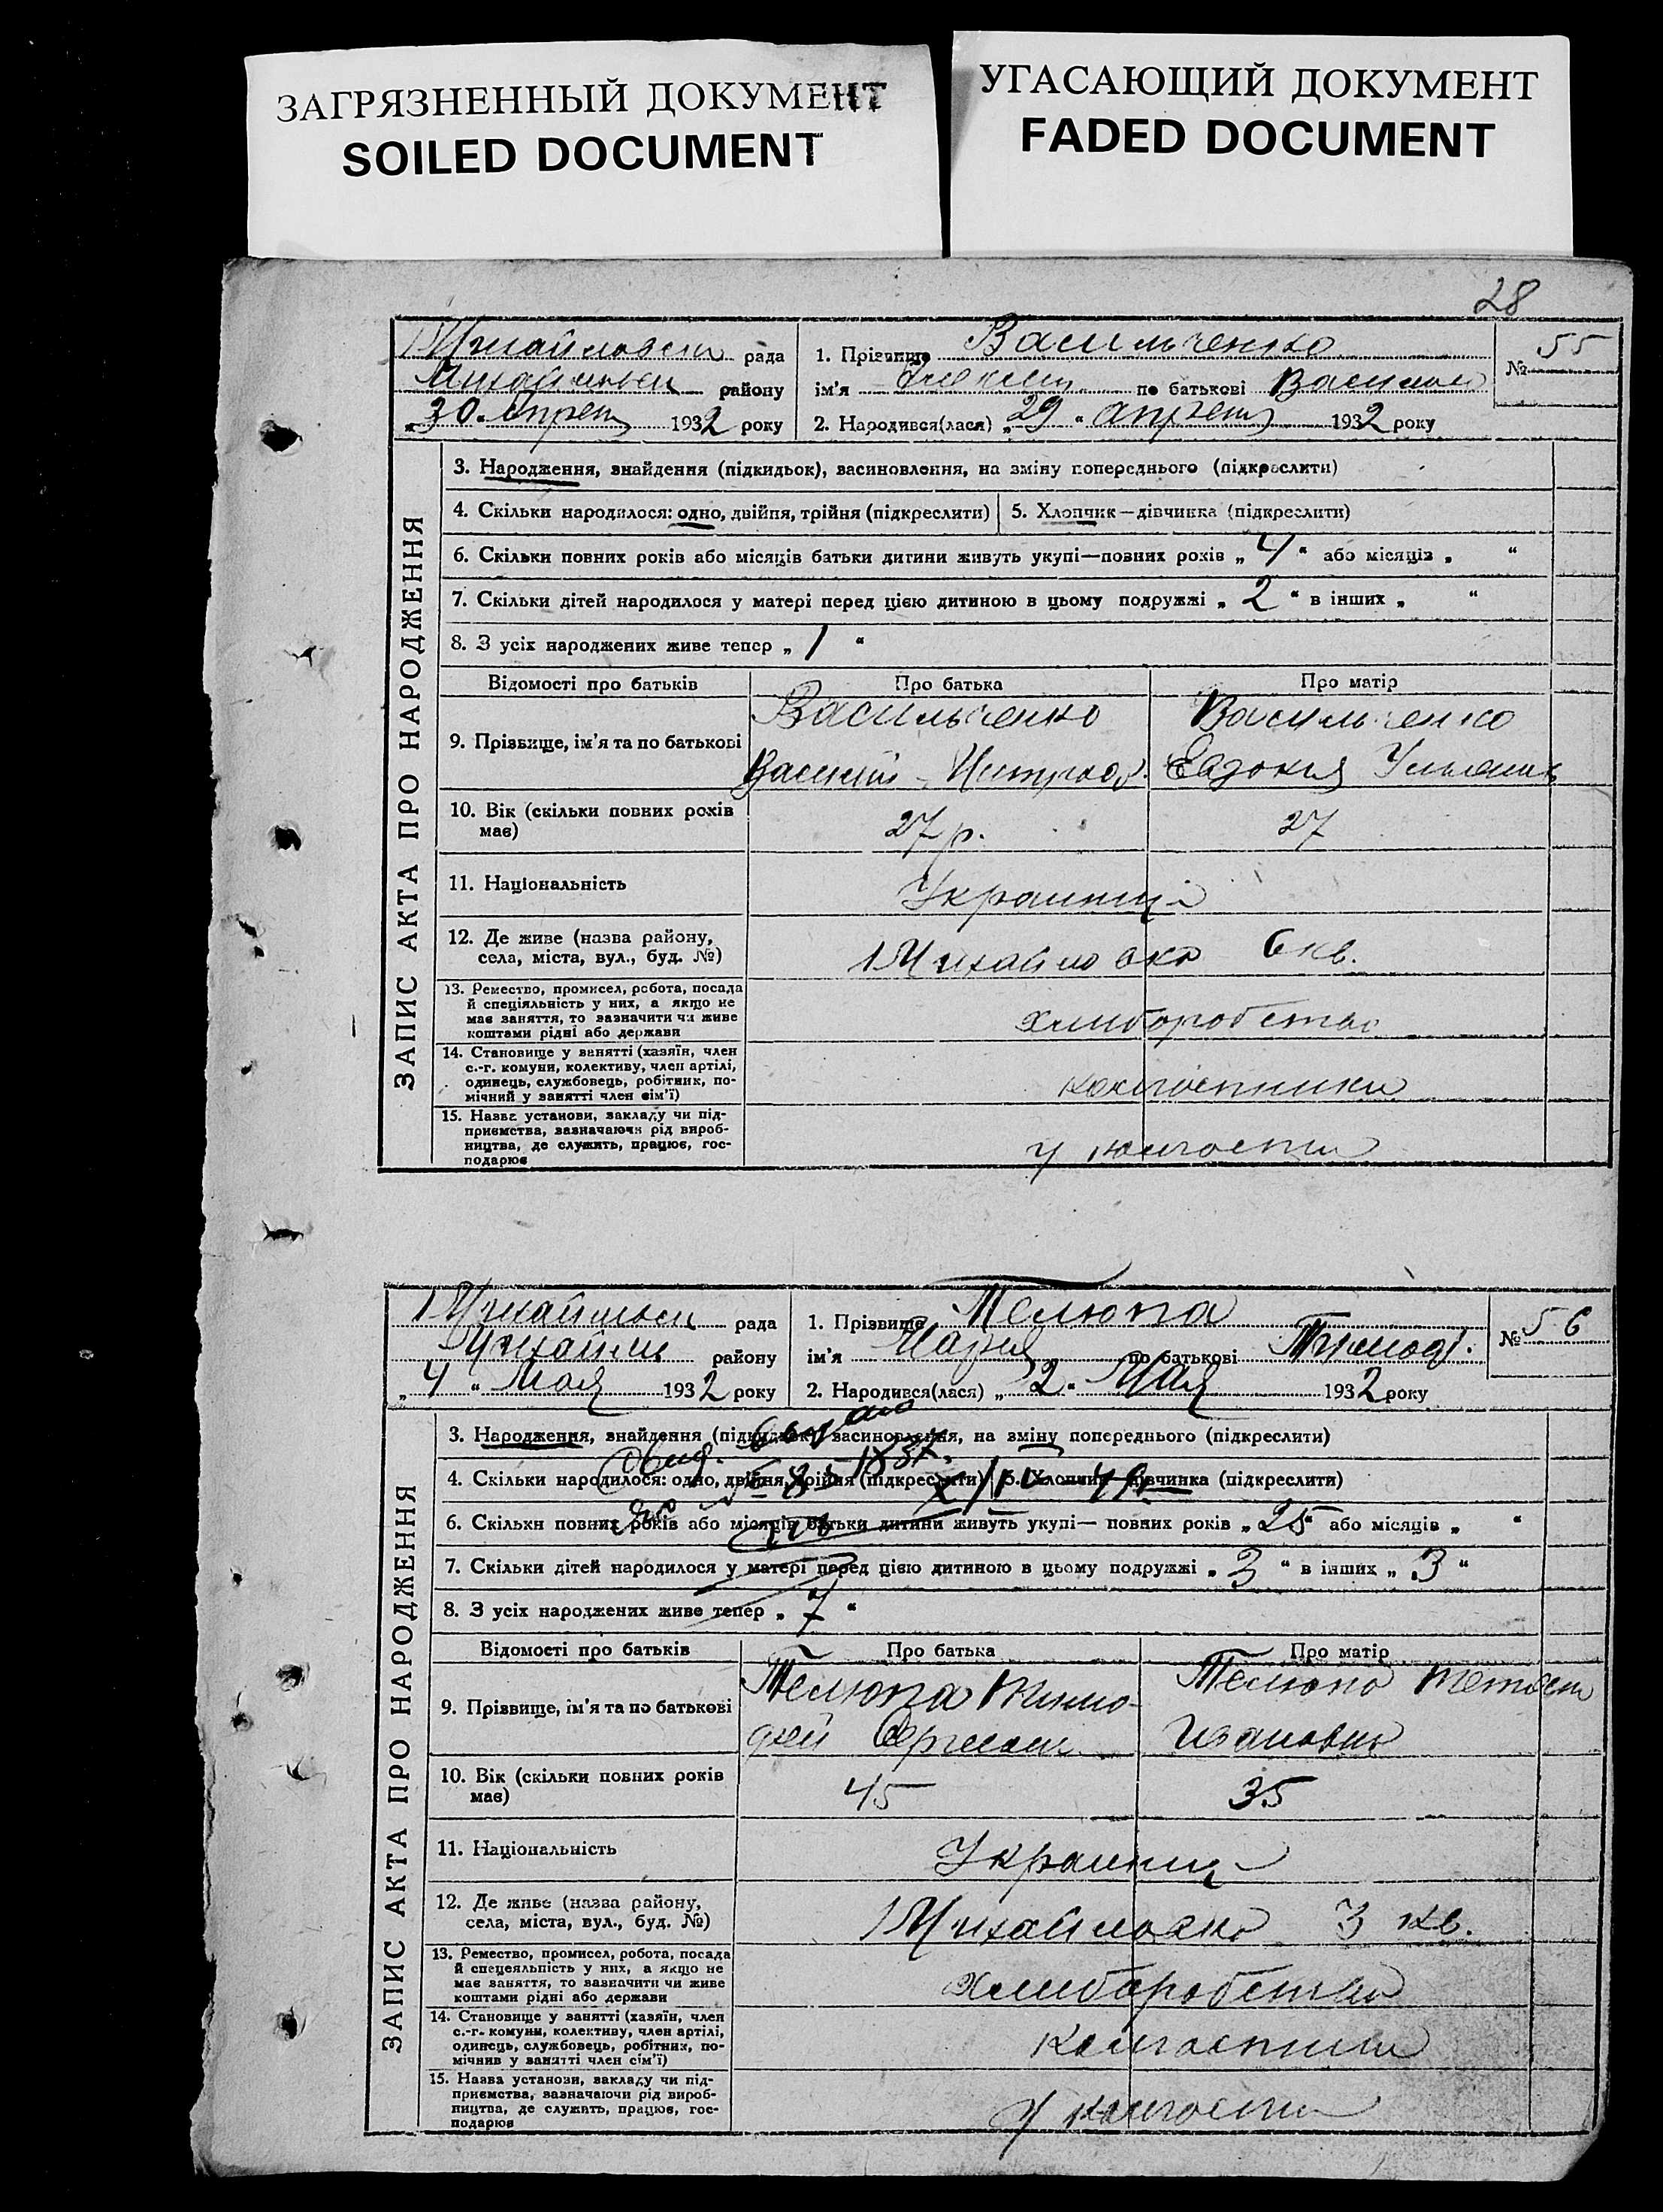 ЗАГРЯЗНЕННЫЙ ДОКУМЕНТ
SOILED DOCUMENT
УГАСАЮЩИЙ ДОКУМЕНТ
FADED DOCUMENT
28
ЗАПИС АКТА ПРО НАРОДЖЕННЯ
рада
району
„30“ 1932 року
1. Прізвище Васильченко
ім'я по батькові
2. Народився(лася) „29“ 1932 року
№ 55
3. Народження, знайдення (підкидьок), васиновлення, на зміну попереднього (підкреслити)
4. Скільки народилося: одно, двійня, трійня (підкреслити)
5. Хлопчик—дівчинка (підкреслити)
6. Скільки повних років або місяців батьки дитини живуть укупі—повних років „4“ або місяців „ “
7. Скільки дітей народилося у матері перед цією дитиною в цьому подружжі „2“ в інших „ “
8. З усіх народжених живе тепер „1“
Відомості про батьків
Про батька
Про матір
9. Прізвище, ім'я та по батькові
Васильченко
Васильченко
Евдокия
10. Вік (скільки повних років
має)
27 р.
27
11. Національність
Украинці
12. Де живе (назва району,
села, міста, вул., буд. №)
1 Михайловка 6 кв.
13. Ремество, промисел, робота, посада
й спеціяльність у них, а якщо не
має заняття, то зазначити чи живе
коштами рідні або держави
хлиборобство
14. Становище у занятті (хазяїн, член
с.-г. комуни, колективу, член артілі,
одинець, службовець, робітник, по-
мічний у занятті член сім'ї)
колгоспники
15. Назва установи, закладу чи під-
приємства, зазначаючи рід вироб-
ництва, де служить, працює, гос-
подарює
у колгоспи
ЗАПИС АКТА ПРО НАРОДЖЕННЯ
рада
району
„4“ Мая 1932 року
1. Прізвище Телюпа
ім'я Мария по батькові Тимоф.
2. Народився(лася) „2“ Мая 1932 року
№ 56
3. Народження, знайдення (підкидьок), васиновлення, на зміну попереднього (підкреслити)
4. Скільки народилося: одно, двійня, трійня (підкреслити)
5. Хлопчик—дівчинка (підкреслити)
6. Скільки повних років або місяців батьки дитини живуть укупі— повних років „25“ або місяців „ “
7. Скільки дітей народилося у матері перед цією дитиною в цьому подружжі „3“ в інших „3“
8. З усіх народжених живе тепер „7“
Відомості про батьків
Про батька
Про матір
9. Прізвище, ім'я та по батькові
Телюпа Тимо-
фей
Телюпа
Ивановна
10. Вік (скільки повних років
має)
45
35
11. Національність
Украинці
12. Де живе (назва району,
села, міста, вул., буд. №)
1 Михайловка 3 кв.
13. Ремество, промисел, робота, посада
й спецеяльність у них, а якщо не
має заняття, то зазначити чи живе
коштами рідні або держави
хлиборобство
14. Становище у занятті (хазяїн, член
с.-г. комуни, колективу, член артілі,
одинець, службовець, робітник, по-
мічник у занятті член сім'ї)
15. Назва установи, закладу чи під-
приємства, зазначаючи рід вироб-
ництва, де служить, працює, гос-
подарює
у колгоспи